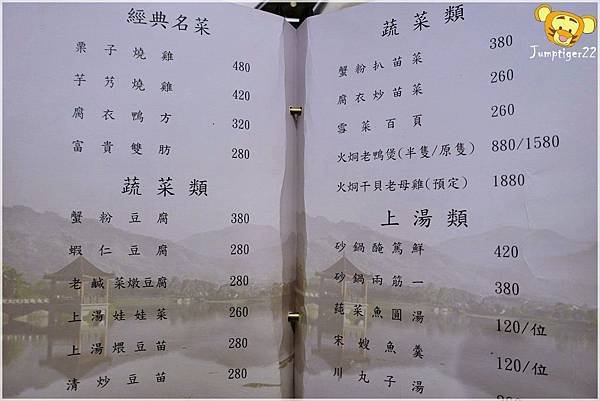 經典名菜
栗子燒雞 480
芋艿燒雞 420
腐衣鴨方 320
富貴雙肪 280
蔬菜類
蟹粉豆腐 380
蝦仁豆腐 280
老鹹菜燉豆腐 280
上湯娃娃菜 260
上湯煨豆苗 280
清炒豆苗 280
蔬菜類
蟹粉扒苗菜 380
腐衣炒苗菜 260
雪菜百頁 260
火炯老鴨煲(半隻/原隻) 880/1580
火炯干貝老母雞(預定) 1880
上湯類
砂鍋醃篤鮮 420
砂鍋兩筋一 380
蓴菜魚圓湯 120/位
宋嫂魚羹 120/位
川丸子湯
Jumptiger22